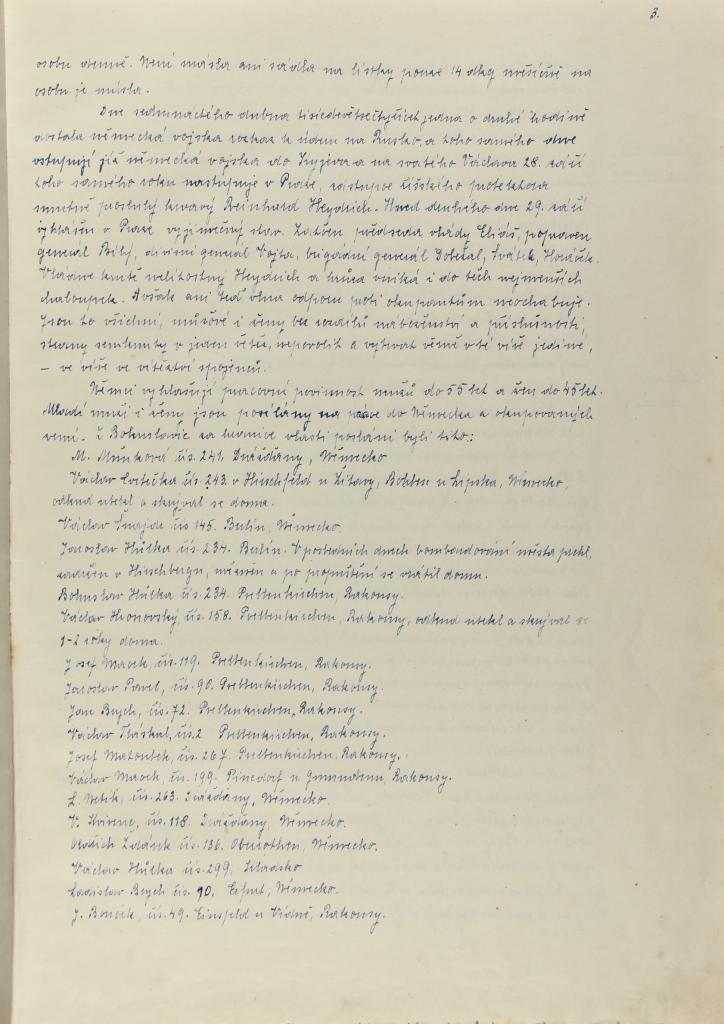 3.
osobu denně. Není másla ani sádla na lístky pouze 14 dkg měsíčně na
osobu je másla.
Dne sedmnáctého dubna tisícdevětsetčtyřicet jedna o druhé hodině
dostala německá vojska rozkaz k úderu na Rusko, a toho samého dne
vstupují již německá vojska do Kyjeva a na svatého Václava 28. září
toho samého roku nastupuje v Praze, zástupce říšského protektora
smutně proslulý krvavý Reinhard Heydrich. Hned druhého dne 29. září
vyhlášen v Praze vyjímečný stav. Zatčen předseda vlády Eliáš, popraven
generál Bílý, divisní generál Vojta, brigádní generál Doležal, Svátek, Horáček.
Vládne krutě nelítostný Heydrich a hrůza vniká i do těch nejmenších
chaloupek. Avšak ani teď vlna odporu proti okupantům neochabuje.
Jsou to všichni, mužové i ženy bez rozdílu náboženství a příslušnosti,
strany semknuty v jeden řetěz, nepovolit a vytrvat věrně v té víře jediné,
— ve víře ve vítězství spojenců.
Němci vyhlašují pracovní povinnost mužů do 55 let a žen do 45 let.
Mladí muži i ženy jsou posíláni na práce do Německa a okupovaných
zemí. Z Bohuslavic za hranice vlasti posláni byli tito:
M. Munková čís. 241. Drážďany, Německo
Václav Cvrčka čís. 243. v Hirschfeld u Žitavy, Böhlen u Lipska, Německo,
odkud utekl a skrýval se doma.
Václav Šmajda čís 145. Berlín, Německo.
Jaroslav Hůlka čís. 234. Berlín. V posledních dnech bombardování města prchl,
zadržen v Hirschbergu, vězněn a po propuštění se vrátil domů.
Bohuslav Hůlka čís. 234. Prellenkirchen, Rakousy.
Václav Hronovský, čís. 158. Prellenkirchen, Rakousy, odkud utekl a skrýval se
1-2 roky doma.
Josef Macek, čís. 119. Prellenkirchen, Rakousy.
Jaroslav Pavel, čís. 90. Prellenkirchen, Rakousy.
Jan Bych, čís. 72. Prellenkirchen, Rakousy.
Václav Tláskal, čís. 2 Prellenkirchen, Rakousy.
Josef Matoulek, čís. 267. Prellenkirchen, Rakousy.
Václav Macek, čís. 199. Pinsdorf u Gmundenu, Rakousy.
L. čís. 263. Drážďany, Německo.
V. čís. 118. Drážďany, Německo.
Oldřich Zdárek čís. 136. Německo.
Václav Hůlka čís. 299, Kladsko
Ladislav Bych čís. 90. Erfurt, Německo.
J. čís. 49. u Vídně, Rakousy.